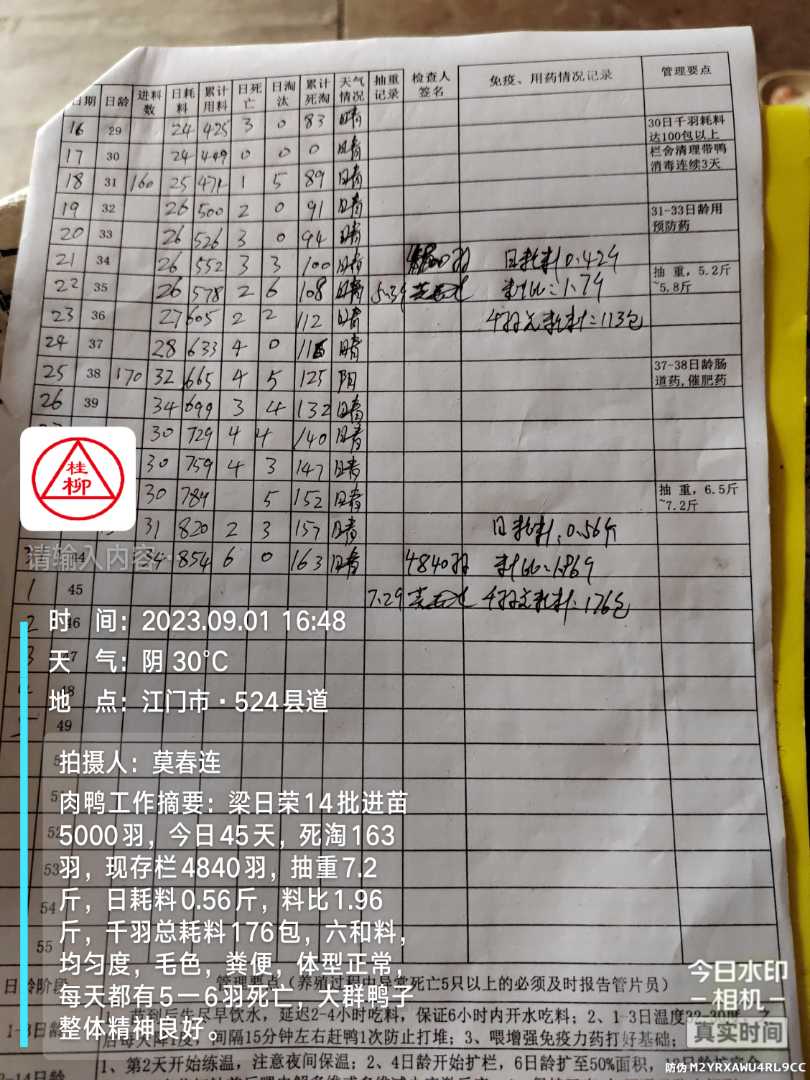 日期 日龄 进料数 日耗料 累计用料 日死亡 日淘汰 累计死淘 天气情况 抽重记录 检查人签名 免疫、用药情况记录 管理要点
16 29 24 425 3 0 83 晴 30日千羽耗料达100包以上
17 30 24 449 0 0 0 晴 栏舍清理带鸭消毒连续3天
18 31 160 25 474 1 5 89 晴
19 32 26 500 2 0 91 晴 31-33日龄用预防药
20 33 26 526 3 0 94 晴
21 34 26 552 3 3 100 晴 日耗料0.42斤
22 35 26 578 2 6 108 晴 料比:1.7斤 抽重，5.2斤~5.8斤
23 36 27 605 2 2 112 晴 耗料:113包
24 37 28 633 4 0 116 晴
25 38 170 32 665 4 5 125 阴 37-38日龄肠道药,催肥药
26 39 34 699 3 4 132 晴
30 729 4 4 140 晴
30 759 4 3 147 晴
30 789 5 152 晴 抽重，6.5斤~7.2斤
31 820 2 3 157 晴 日耗料:0.56斤
34 854 6 0 163 晴 4840羽 料比:1.96斤
1 45 7.2斤 耗料:176包
2 46
3 47
4 48
5 49
52
53
54
55
桂柳
请输入内容
时 间：2023.09.01 16:48
天 气：阴 30℃
地 点：江门市·524县道
拍摄人：莫春连
肉鸭工作摘要：梁日荣14批进苗
5000羽，今日45天，死淘163
羽，现存栏4840羽，抽重7.2
斤，日耗料0.56斤，料比1.96
斤，千羽总耗料176包，六和料，
均匀度，毛色，粪便，体型正常，
每天都有5一6羽死亡，大群鸭子
整体精神良好。
日龄阶段 管理要点（养殖过程中异常死亡5只以上的必须及时报告管片员）
1-3日龄 延迟2-4小时吃料，保证6小时内开水吃料；2、1-3日温度32-30
间隔15分钟左右赶鸭1次防止打堆；3、喂增强免疫力药打好基础；
-14日龄 1、第2天开始练温，注意夜间保温；2、4日龄开始扩栏，6日龄扩至50%面积，
今日水印
相机
真实时间
防伪 M2YRXAWU4RL9CC